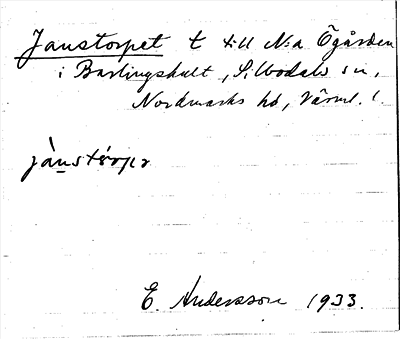 Janstorpet t till N:a Ögården
i Barlingshult, Silbodals sn,
Nordmarks hd, Värml. l.
jànstórpə
E. Andersson 1933.